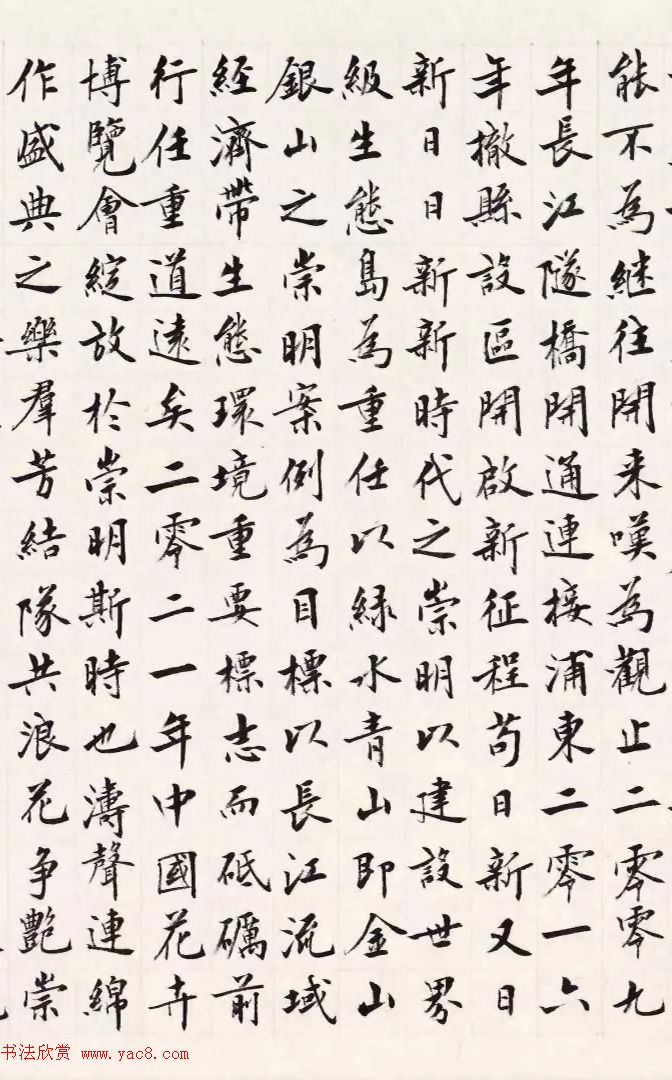 能不為继往開来嘆為觀止二零零九
年長江隧橋開通連接浦東二零一六
年撤縣設區開啟新征程苟日新又日
新日日新新時代之崇明以建設世界
級生態島為重任以緑水青山即金山
銀山之崇明案例為目標以長江流域
經濟帶生態環境重要標志而砥礪前
行任重道遠矣二零二一年中國花卉
博覽會綻放於崇明斯時也濤聲連綿
作盛典之樂羣芳結隊共浪花争艷崇
书法欣赏 www.yac8.com